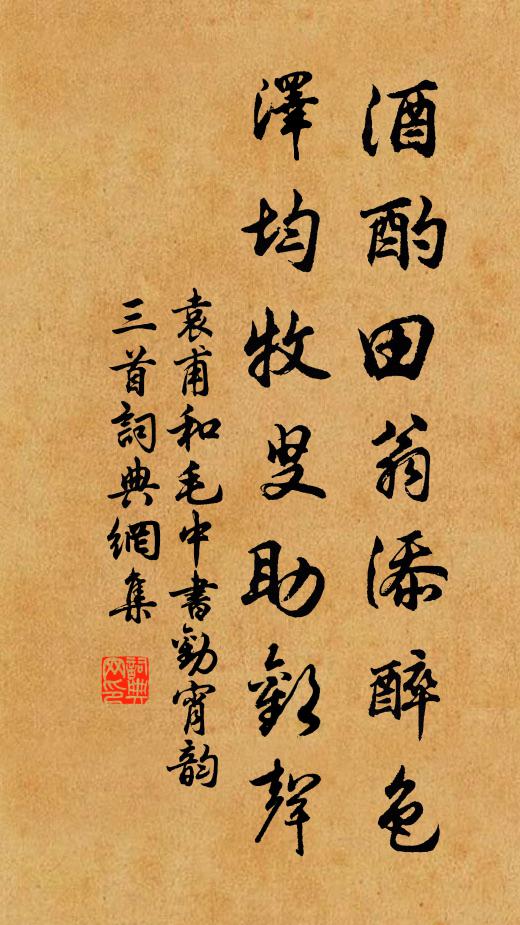 酒酌田翁添醉色
澤均牧叟助歡聲
袁甫和毛中書勸宵韵
三首詞典網集
詞典網印